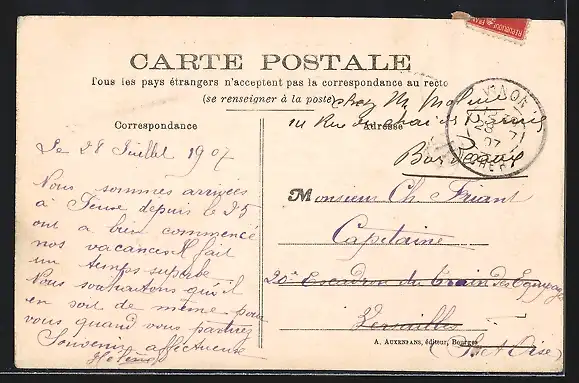 CARTE POSTALE
Tous les pays étrangers n'acceptent pas la correspondance au recto
(se renseigner à la poste)
chez Mr
Rue du
Bordeaux
VINON
28
07
CHER
Correspondance
Adresse
Le 28 Juillet 1907
Nous sommes arrivées
à depuis le 25
ont a bien commencé
nos vacances Il fait
un temps superbe
Nous souhaitons qu'il
en soit de même pour
vous quand vous partirez
Souvenir affectueux
Hélène
Monsieur Ch. Friant
Capitaine
20e Escadron du Train des Equipages
Versailles
(Set Oise)
A. AUXENFANS, éditeur, Bourges